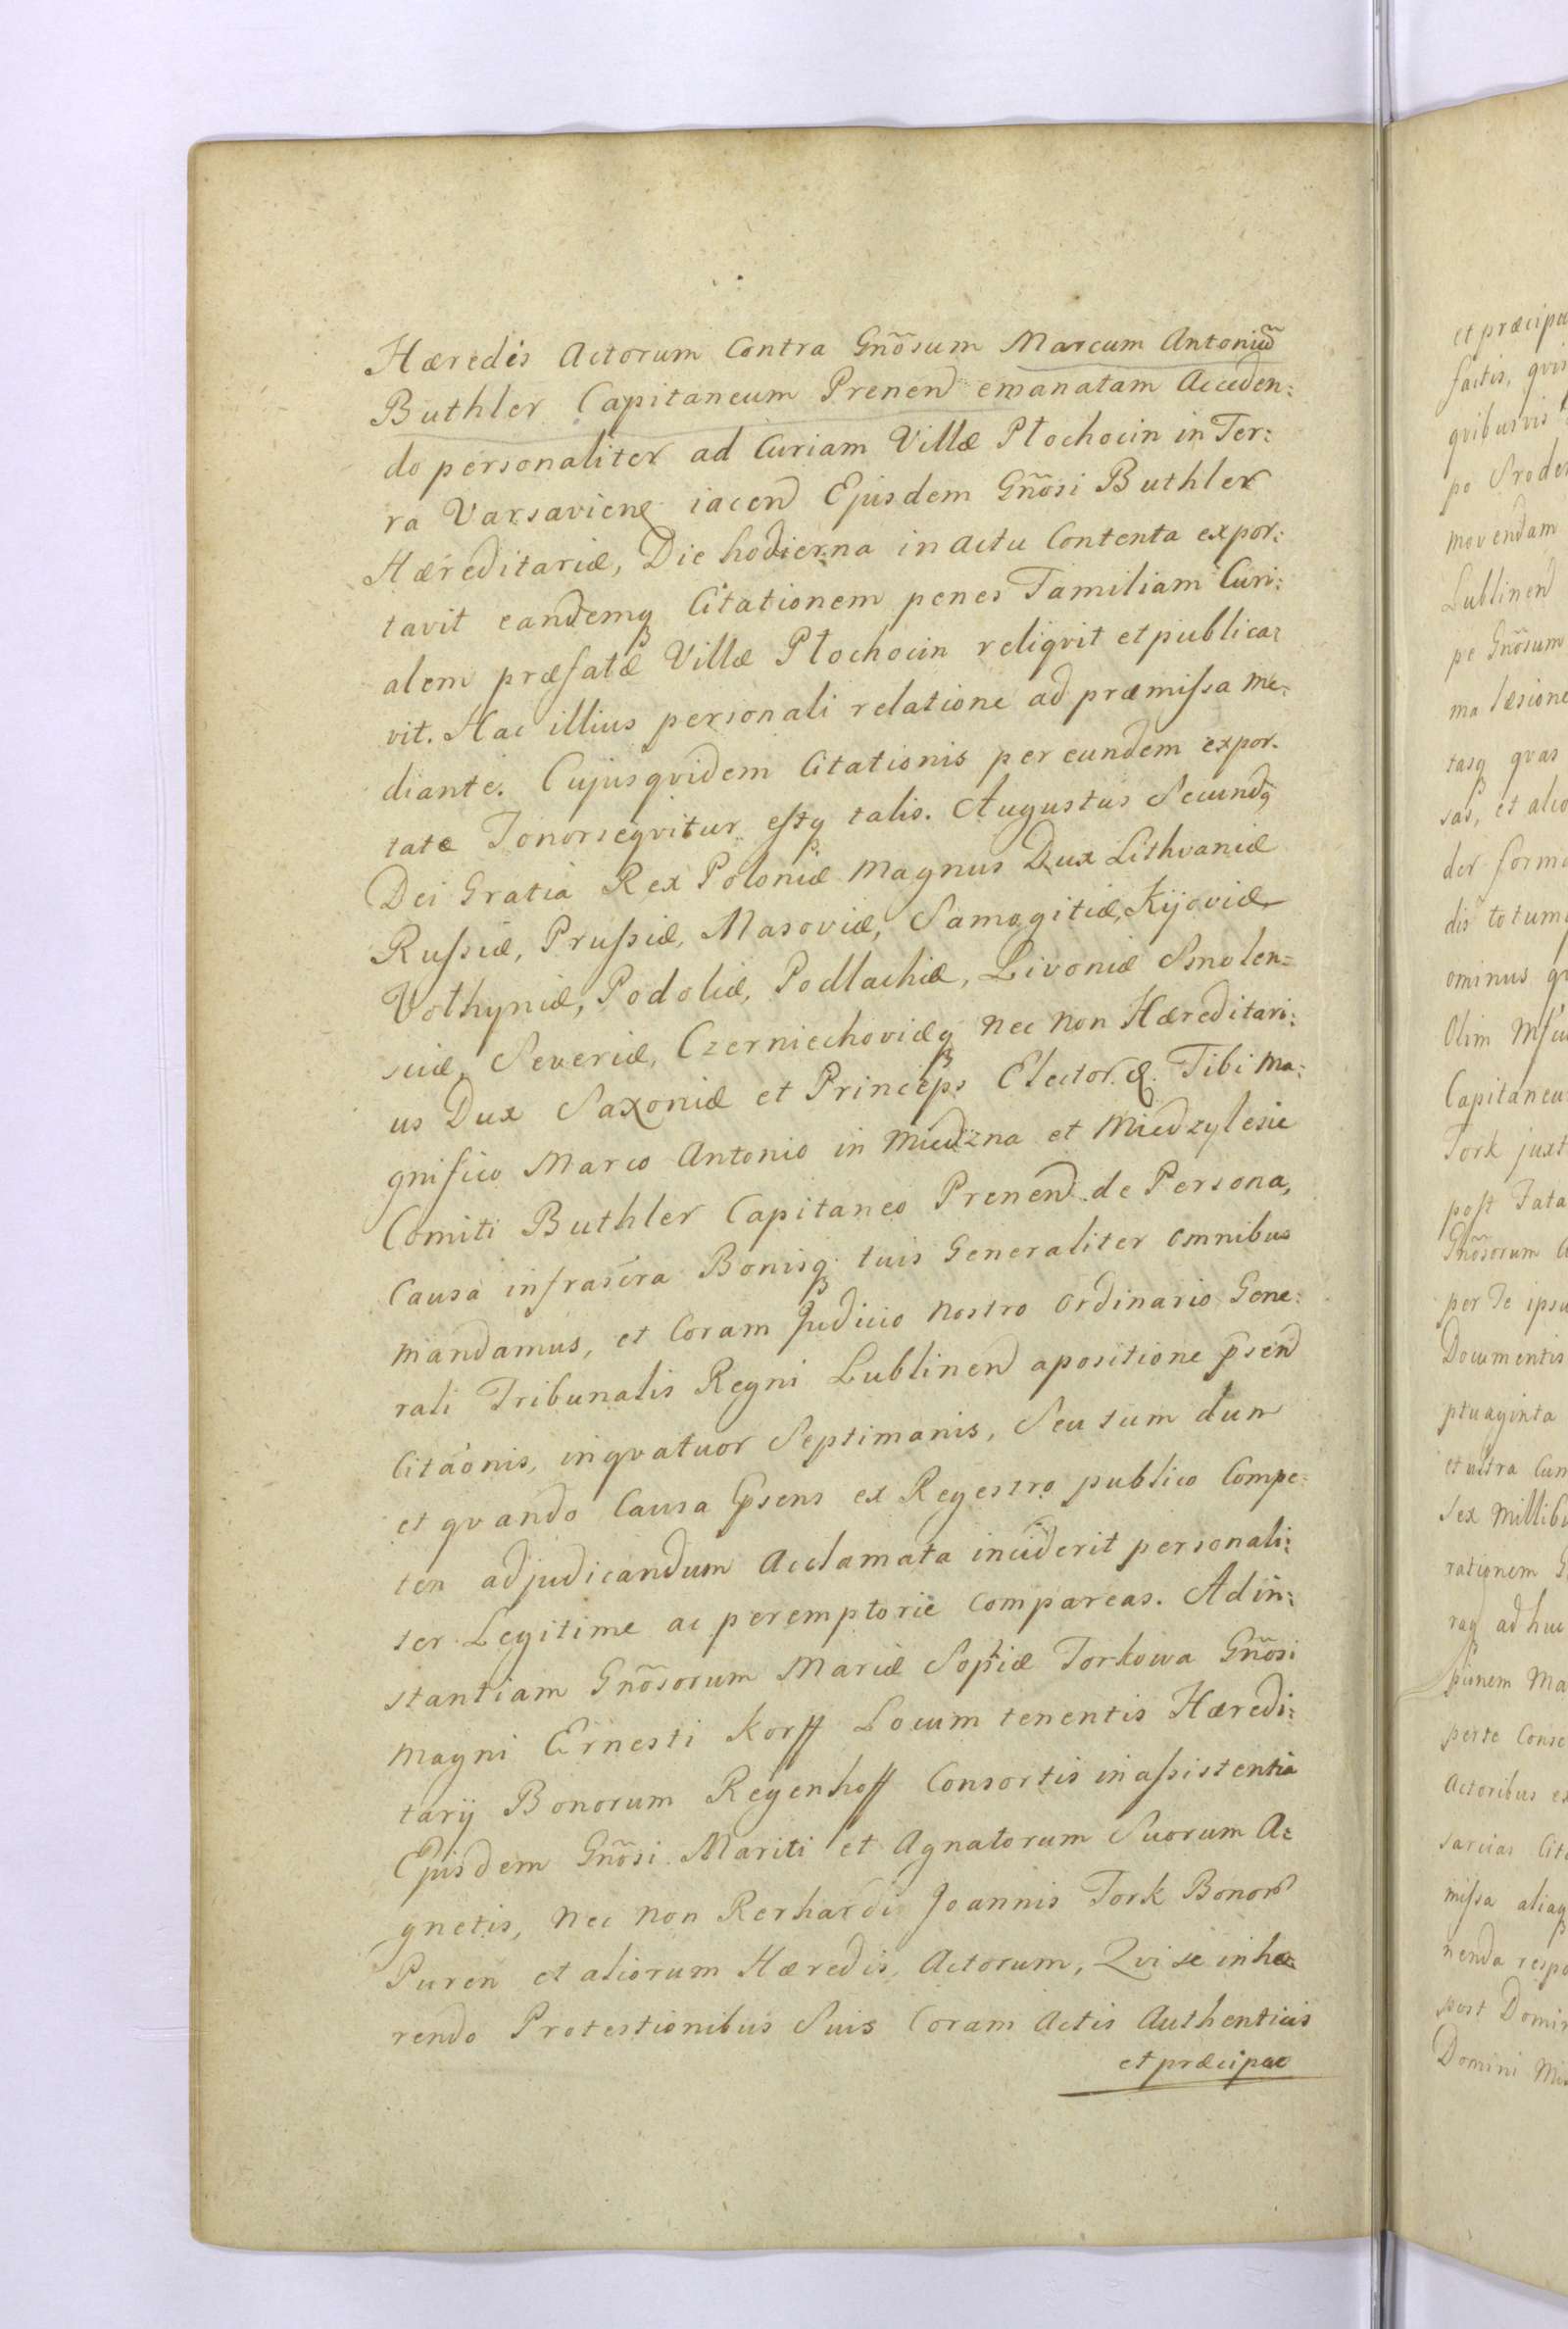 Hæredis Actorum Contra Gñosum Marcum Antoniũ
Buthler Capitaneum Prenen̄ emanatam Acceden:
do personaliter ad Curiam Villæ Płochocin in Ter:
ra Varsavieng iacen̄ Ejusdem Gñosi Buthler
Hæreditariæ, Die hodierna in actu Contenta expor:
tavit eandemq Citationem penes Familiam Curi:
alem præfatæ Villæ Płochocin reliqvit et publica:
vit. Hac illius personali relatione ad præmissa me:
diante. Cujusqvidem Citationis per eundem expor:
tatæ Tenor seqvitur estq talis. Augustus Secundq
Dei Gratia Rex Poloniæ Magnus Dux Lithvaniæ
Russiæ, Prussiæ, Masoviæ, Samogitiæ, Kijoviæ
Vołhyniæ, Podoliæ, Podlachiæ, Livoniæ Smolen:
sciæ, Severiæ, Czerniechoviæq Nec Non Hæreditari:
us Dux Saxoniæ et Princeps Elector. &. Tibi Ma:
gnifico Marco Antonio in Miedzna et Miedzylesie
Comiti Buthler Capitaneo Prenen̄ de Persona,
Causa infrascra Bonisq tuis Generaliter omnibus
Mandamus, et Coram Judicio Nostro Ordinario Gene:
rali Tribunalis Regni Lublinen̄ apositione p̄sen̄
Citãonis, inqvatuor Septimanis, Seu tum dum
et qvando Causa p̄sens ex Regestro publico Compe:
ten adjudicandum Acclamata inciderit personali:
ter Legitime ac peremptorie Compareas. Ad in:
stantiam Gñosorum Mariæ Sophiæ Torkowa Gñosi
Magni Ernesti Korff Locum tenentis Hæredi:
tarij Bonorum Regenhoff Consortis in assistentia
Ejusdem Gñosi Mariti et Agnatorum Suorum A:
gnetis, Nec Non Rerhardi Joannis Tork Bonor̄
Puren et aliorum Hæredis, Actorum, Qvi se inhæ:
rendo Protestionibus Suis Coram Actis Authenticis
et præcipue
et præcipu
factis, qvi
qvibusvis
po
movendam
Lublinen̄
pe Gñosum
ma læsione
tasq qvas
sas, et alio
der forma
dis totum
ominus
Olim
Capitaneu
Tork juxt
post Fata
Gñosorum
per Te ipsu
Documentis
ptuaginta
et ultra Cum
Sex Millib
rationem
raq adhuc
pionem Ma
perte Conse
Actoribus
sarcias Cit
missa aliaq
nenda respo
post Domin
Domini